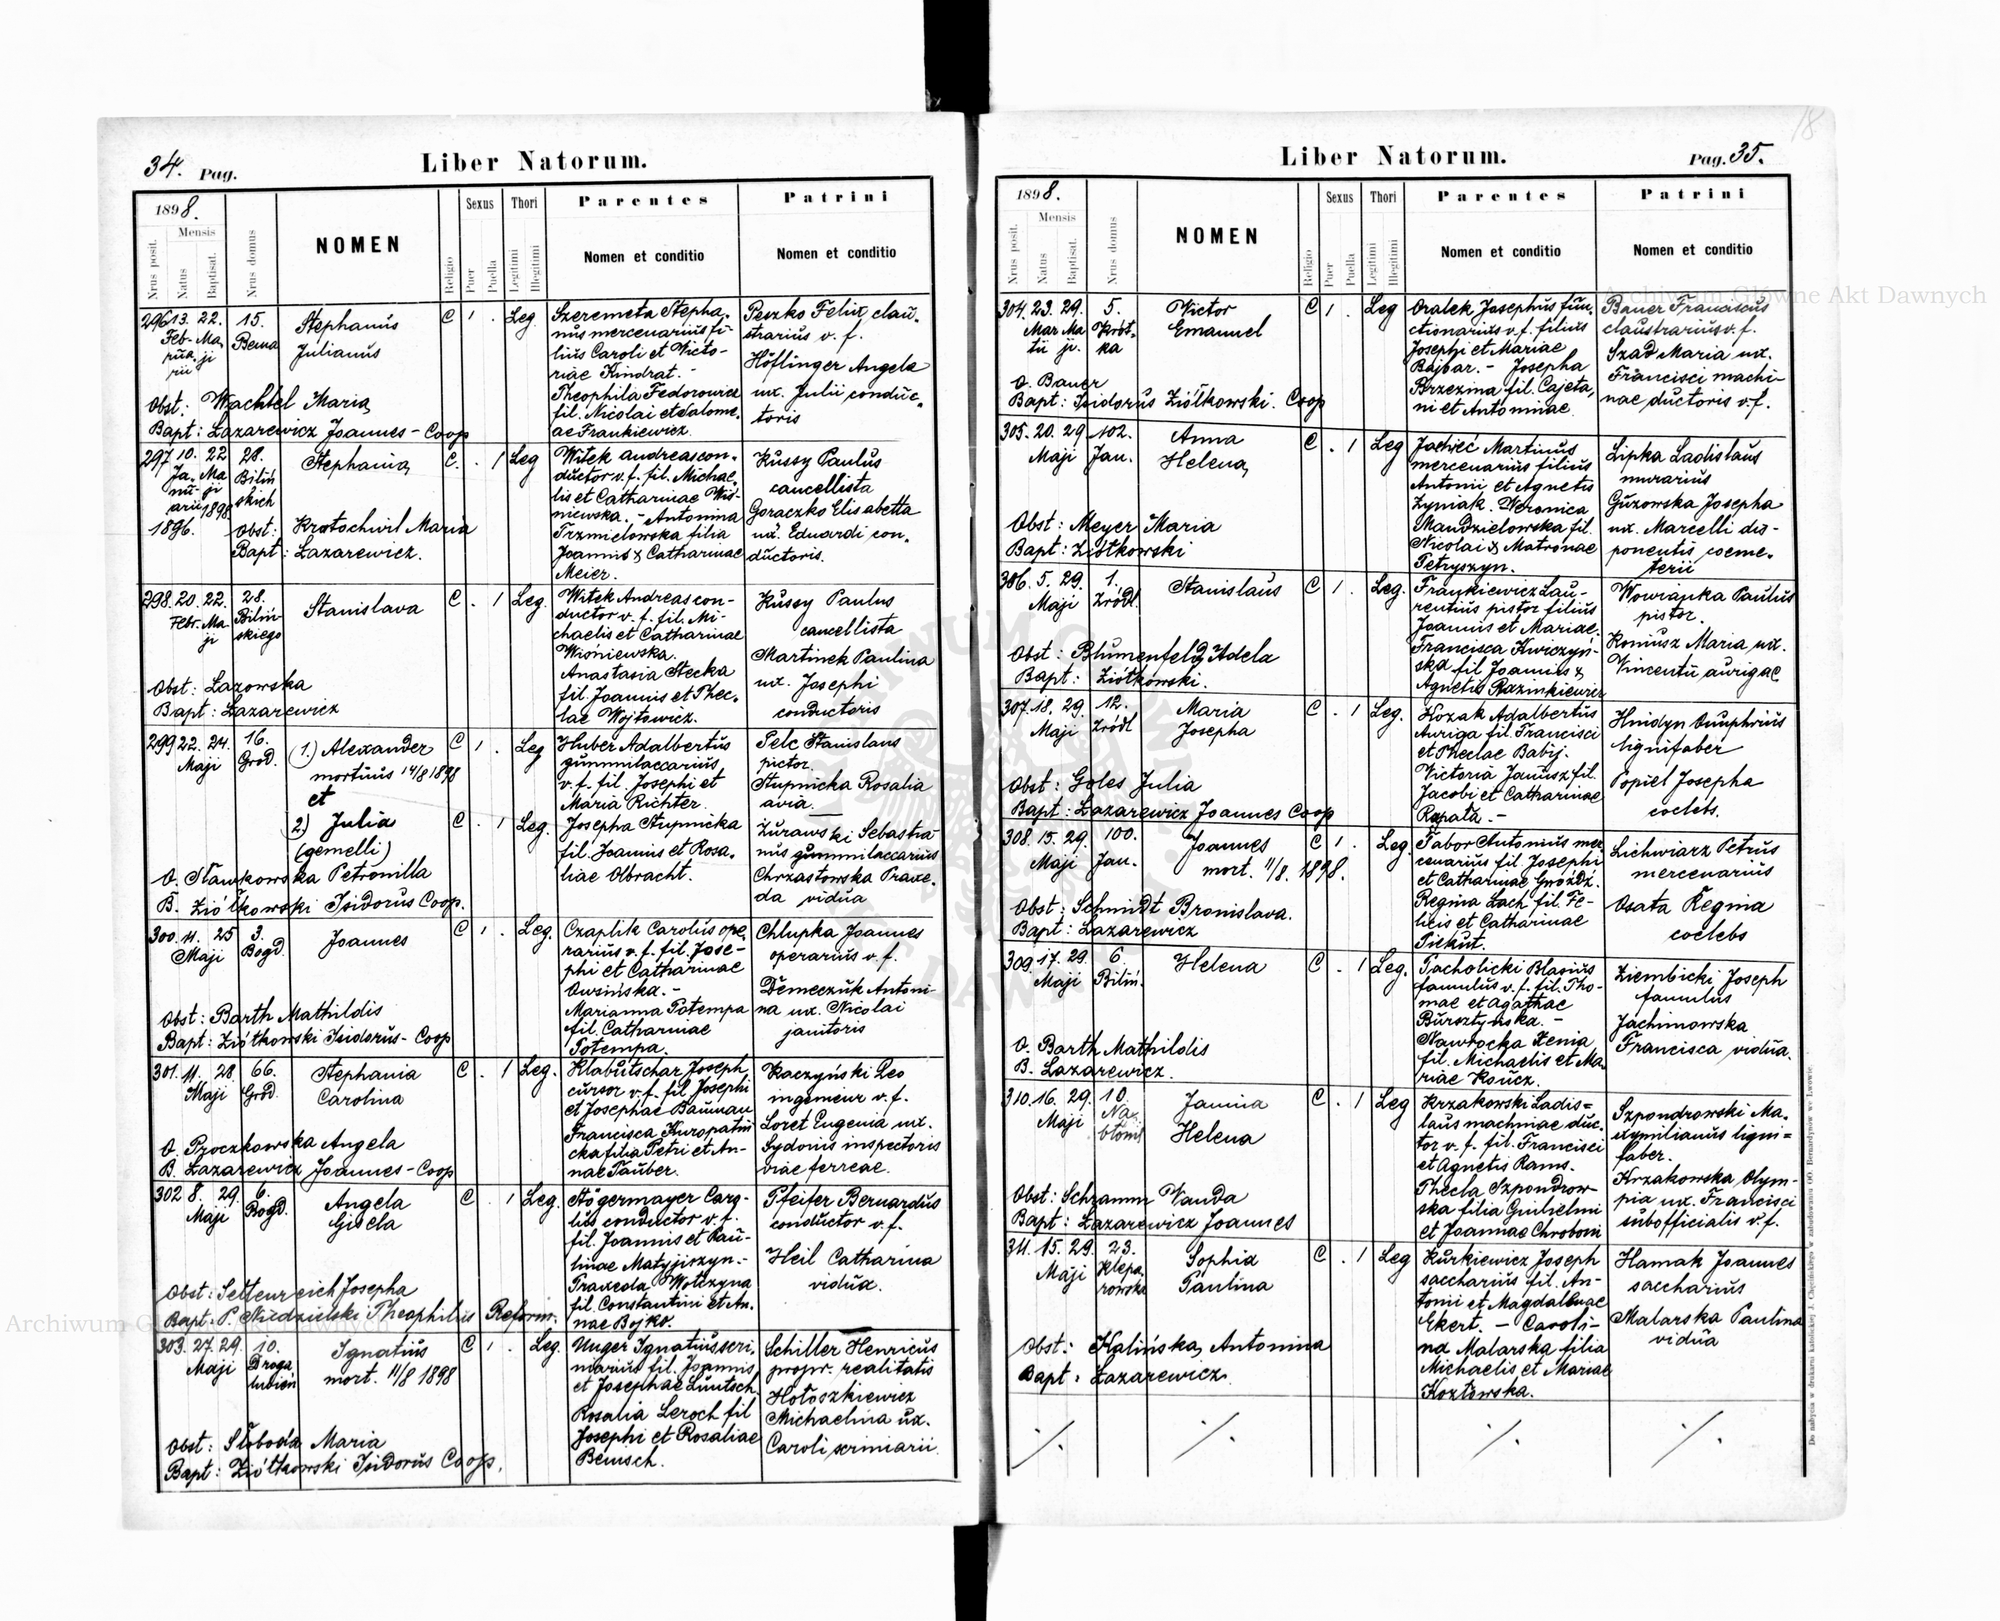 34. Pag.
Liber Natorum.
1898.
Mensis
Nrus posit.
Natus
Baptisat.
Nrus domus
NOMEN
Religio
Sexus
Puer
Puella
Thori
Legitimi
Illegitimi
Parentes
Nomen et conditio
Patrini
Nomen et conditio
296 13. 22. 15. Stephanus C 1 . Leg.
Feb- Ma- Berna Julianus
rua- ji
rii
Obst: Wachtel Maria
Bapt: Lazarewicz Joannes - Coop
Szeremeta Stepha-
nus mercenarius fi-
lius Caroli et Victo-
riae Kindrat. -
Theophila Fedorowicz
fil. Nicolai et Salome-
ae Frankiewicz.
Peszko Felix clau-
strarius v. f.
Höflinger Angela
ux. Julii conduc-
toris
297 10. 22 28. Stephania C. . 1 Leg
Ja- Ma Biliń
nu- ji skich
arii 1898
1896.
Obst: Kratochwil Maria
Bapt: Lazarewicz.
Witek Andreas con-
ductor v. f. fil. Michae-
lis et Catharinae Wiś-
niewska. - Antonina
Trzmielowska filia
Joannis & Catharinae
Meier.
Kussy Paulus
cancellista
Goraczko Elisabetta
ux. Eduardi con-
ductoris.
298. 20. 22. 28. Stanislava C . 1 Leg.
Febr. Ma- Biliń-
ji skiego
Obst: Lazowska
Bapt: Lazarewicz
Witek Andreas con-
ductor v. f. fil. Mi-
chaelis et Catharinae
Wiśniewska.
Anastasia Stecka
fil. Joannis et Thec-
lae Wojtowicz.
Kussy Paulus
cancellista
Martinek Paulina
ux. Josephi
conductoris
299 22. 24. 16. 1.) Alexander C 1 . Leg
Maji Grod. mortuus 14/8 1898
et
2.) Julia C . 1 Leg.
(gemelli)
O. Sławkowska Petronilla
B. Ziółkowski Isidorus Coop.
Huber Adalbertus
gummilaccarius
v. f. fil. Josephi et
Maria Richter.
Josepha Stupnicka
fil. Joannis et Rosa-
liae Olbracht.
Pelc Stanislaus
pictor.
Stupnicka Rosalia
avia.
Żurawski Sebastia
nus gummilaccarius
Chrzastowska Praxe-
da vidua
300. 11. 25 3. Joannes C 1 . Leg.
Maji Bogd.
Obst: Barth Mathildis
Bapt: Ziółkowski Isidorus - Coop
Czaplik Carolus ope-
rarius v. f. fil. Jose-
phi et Catharinae
Owsińska. -
Marianna Potempa
fil. Catharinae
Potempa.
Chlupka Joannes
operarius v. f.
Demeczuk Antoni-
na ux. Nicolai
janitoris
301. 11. 28 66. Stephania C . 1 Leg.
Maji Grod. Carolina
O. Proczkowska Angela
B. Lazarewicz Joannes - Coop
Klabutschar Joseph
cursor v. f. fil Josephi
et Josephae Bauman
Francisca Kuropatni
cka filia Petri et An-
nae Tauber.
Kaczyński Leo
ingenieur v. f.
Loret Eugenia ux.
Sydonis inspectoris
viae ferreae.
302 8. 29. 6. Angela C . 1 Leg.
Maji Bogd. Gisela
Obst: Josepha
Bapt. P. Niedzielski Theophilus Reform.
Stögermayer Caro-
lus conductor v. f.
fil. Joannis et Pau-
linae
Praxeda Wołczyna
fil. Constantini et An-
nae Bojko.
Pfeifer Bernardus
conductor v. f.
Heil Catharina
vidua.
303. 27. 29. 10. Ignatius C 1 . Leg.
Maji Droga mort. 11/8 1898
lubień
Obst: Słoboda Maria
Bapt: Ziółkowski Isidorus Coop.
Unger Ignatius scri-
niarius fil. Joannis
et Josephae Luntsch.
Rosalia Leroch fil
Josephi et Rosaliae
Benisch.
Schiller Henricus
propr. realitatis
Hołoszkiewicz
Michaelina ux.
Caroli scriniarii.
Liber Natorum.
Pag. 35.
1898.
Mensis
Nrus posit.
Natus
Baptisat.
Nrus domus
NOMEN
Religio
Sexus
Puer
Puella
Thori
Legitimi
Illegitimi
Parentes
Nomen et conditio
Patrini
Nomen et conditio
304. 23. 29. 5. Victor C 1 . Leg
Mar Ma Krót- Emanuel
tii ji. ka
O. Bauer
Bapt: Isidorus Ziółkowski. Coop
Oralek Josephus fun-
ctionarius v. f. filius
Josephi et Mariae
Bajbar. - Josepha
Brzezina fil. Cajeta-
ni et Antoninae.
Bauer Franciscus
claustrarius v. f.
Szad Maria ux.
Francisci machi-
nae ductoris v. f.
305. 20. 29 102. Anna C . 1 Leg
Maji Jan. Helena
Obst: Meyer Maria
Bapt: Ziółkowski
Jachieć Martinus
mercenarius filius
Antonii et Agnetis
Zyniak. Weronica
Mandzielowska fil.
Nicolai & Matronae
Petryszyn.
Lipka Ladislaus
murarius
Guzowska Josepha
ux. Marcelli dis-
ponentis coeme-
terii
306. 5. 29. 1. Stanislaus C 1 . Leg.
Maji Źródl.
Obst: Blumenfeld Adela
Bapt: Ziółkowski.
Frankiewicz Lau-
rentius pistor filius
Joannis et Mariae.
Francisca Kwiczyń-
ska fil Joannis &
Agnetis Razinkiewicz
Wowianka Paulus
pistor.
Koniusz Maria ux.
Vincentii aurigae
307. 18. 29. 12. Maria C . 1 Leg.
Maji Źródl Josepha
Obst: Goles Julia
Bapt: Lazarewicz Joannes Coop
Kozak Adalbertus
Auriga fil. Francisci
et Theclae Babij.
Victoria Janusz fil.
Jacobi et Catharinae
Rapata. -
Hnidyn Onuphrius
lignifaber
Popiel Josepha
coelebs.
308. 15. 29. 100. Joannes C 1 . Leg.
Maji Jan. mort. 11/8. 1898.
Obst: Schmidt Bronislava.
Bapt: Lazarewicz
Tabor Antonius mer
cenarius fil. Josephi
et Catharinae Gwoźdź.
Regina Lach fil. Fe-
licis et Catharinae
Piekut.
Lichwiarz Petrus
mercenarius
Osata Regina
coelebs
309. 17. 29. 6. Helena C . 1 Leg.
Maji Biliń.
O. Barth Mathildis
B. Lazarewicz.
Pacholicki Blasius
famulus v. f. fil. Tho-
mae et Agathae
Bursztyńska. -
Nawrocka Xenia
fil. Michaelis et Ma-
riae Koncz.
Ziembicki Joseph
famulus
Jachimowska
Francisca vidua.
310. 16. 29. 10. Janina C . 1 Leg
Maji Na Helena
błonie
Obst: Schramm Vanda
Bapt: Lazarewicz Joannes
Krzakowski Ladis=
laus machinae duc-
tor v. f. fil. Francisci
et Agnetis Rams.
Thecla Szpondrow-
ska filia Guilielmi
et Joannae Chroboni
Szpondrowski Ma-
xymilianus ligni=
faber.
Krzakowska Olym-
pia ux. Francisci
subofficialis v. f.
311. 15. 29. 23. Sophia C . 1 Leg
Maji Klepa Paulina
rowska
Obst: Kalińska Antonina
Bapt: Lazarewicz.
Kurkiewicz Joseph
saccharius fil. An-
tonii et Magdalenae
Ekert. - Caroli-
na Malarska filia
Michaelis et Mariae
Kozłowska.
Hamak Joannes
saccharius
Malarska Paulina
vidua
Do nabycia w drukarni katolickiej J. Chęcińskiego w zabudowaniu OO. Bernardynów we Lwowie.
18
Archiwum Główne Akt Dawnych
Archiwum Główne Akt Dawnych